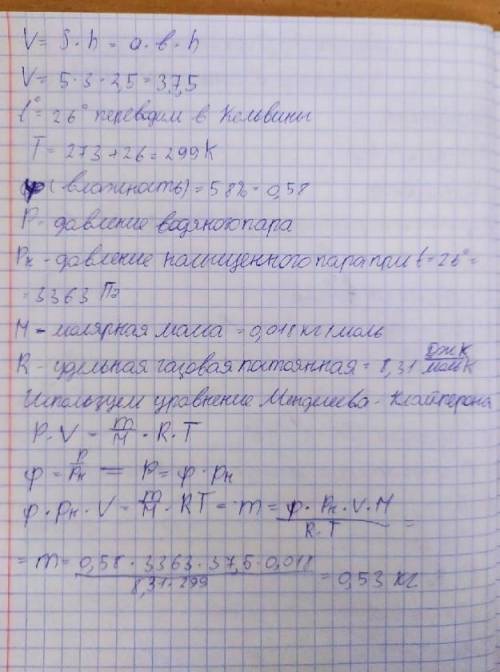 V = S · h = a · в · h
V = 5 · 3 · 2,5 = 37,5
t° = 26° переводим в Кельвины
T = 273 + 26 = 299 К
φ (влажность) = 58% = 0,58
P - давление водяного пара
Pн - давление насыщенного пара при t = 26° =
= 3363 Па
M - молярная масса = 0,018 кг/моль
R - удельная газовая постоянная = 8,31 Дж·К/моль·К
Используем уравнение Менделеева - Клайперона
P · V = m/M · R · T
φ = P/Pн = P = φ · Pн
φ · Pн · V = m/M · RT = m = φ · Pн · V · M / R · T =
= m = 0,58 · 3363 · 37,5 · 0,018 / 8,31 · 299 = 0,53 кг